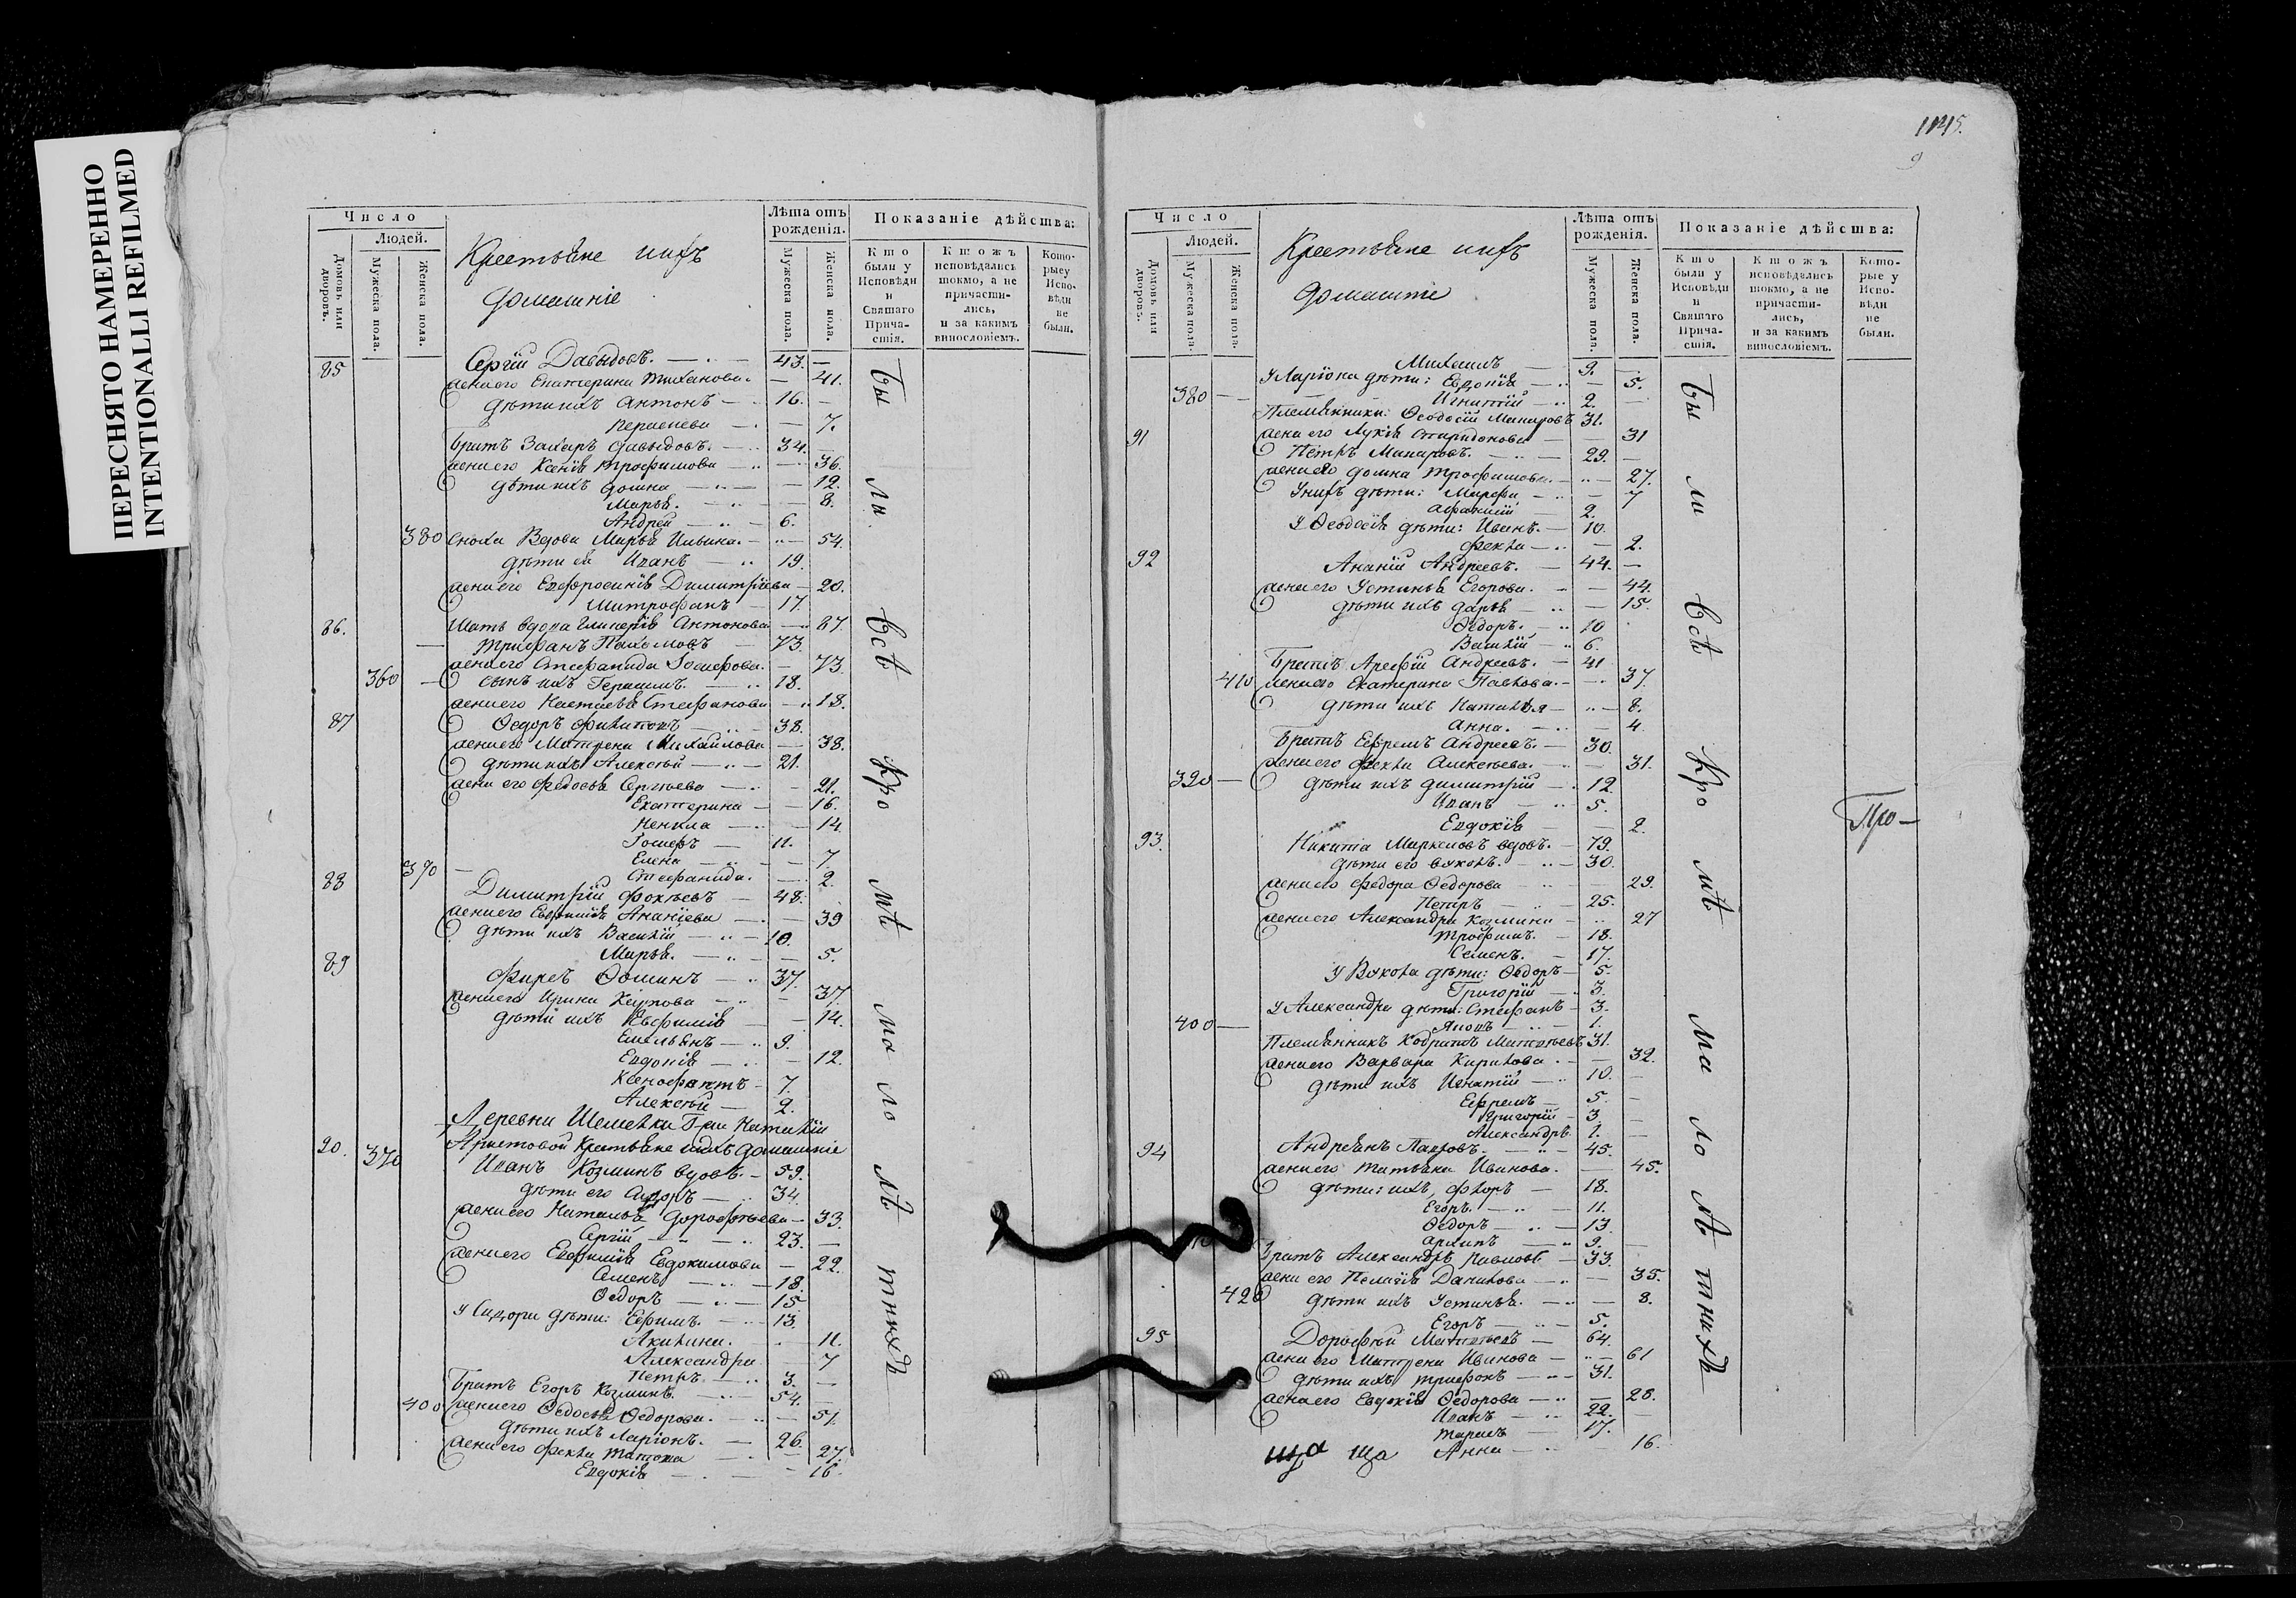 ПЕРЕСНЯТО НАМЕРЕННО
INTENTIONALLI REFILMED
Число
Людей.
Домовъ или дворовъ.
Мужеска пола.
Женска пола.
Крестьяне ихъ
домашніе
Лѣта отъ рожденія.
Мужеска пола.
Женска пола.
Показаніе дѣйства:
Кто были у Исповѣди и Святаго Причастія.
Ктожъ исповѣдались токмо, а не причастились, и за какимъ винословіемъ.
Которые у Исповѣди не были.
85 Сергій Давыдовъ. 43.
жена его Екатерина 41.
дѣти ихъ Антонъ 16.
7.
братъ Захаръ Давыдовъ. 34.
жена его Ксенія Трофимова 36.
дѣти ихъ Домна 12.
Марья. 8.
Андрей 6.
380 сноха Вдова Марья Ильина. 54.
дѣти ея Иванъ 19.
жена его Евфросинія Димитріева 20.
Митрофанъ 17.
мать вдова Гликерія Антонова 87.
86. Трифанъ Пахомовъ 73.
жена его Стефанида Іосифова. 73.
360 сынъ ихъ Герасимъ. 18.
жена его Настасья Стефанова 18.
87 Ѳедоръ Филиповъ 38.
жена его Матрена Михайлова 38.
дѣти ихъ Алексѣй 21.
жена его Федосья Сергѣева 21.
Екатерина 16.
14.
Іосифъ 11.
Елена 7.
390 Стефанида. 2.
88 Димитрій Фокѣевъ 48.
жена его Евфимія Ананіева 39
дѣти ихъ Василій 10.
Марья. 5.
89 Фирсъ Ѳоминъ 37.
жена его Ирина Карпова 37.
дѣти ихъ Евфимія 14.
Емельянъ 9.
Евдокія 12.
Ксенофантъ 7.
Алексѣй 2.
Деревни Шемелки Г-жи Наталіи
Аристовой Крестьяне ихъ домашніе
90. 370 Иванъ Козминъ вдовъ. 59.
дѣти его Сидоръ 34.
жена его Наталья Дорофѣева 33.
Сергій 23.
жена его Евфимія Евдокимова 22.
Семенъ 18.
Ѳедоръ 15.
у Сидора дѣти: Ефимъ. 13.
Акилина. 11.
Александра 7
Петръ 3.
братъ Егоръ Козминъ. 54.
400 жена его Ѳедосья Ѳедорова. 51.
дѣти ихъ Ларіонъ. 26.
жена его Фекла 27.
Евдокія 16.
бы ли всѣ кро мѣ ма ло лѣ тнихъ
1145.
9
Число
Людей.
Домовъ или дворовъ.
Мужеска пола.
Женска пола.
Крестьяне ихъ
домашніе
Лѣта отъ рожденія.
Мужеска пола.
Женска пола.
Показаніе дѣйства:
Кто были у Исповѣди и Святаго Причастія.
Ктожъ исповѣдались токмо, а не причастились, и за какимъ винословіемъ.
Которые у Исповѣди не были.
Михаилъ 9.
у Ларіона дѣти: Евдокія 5.
380 Игнатій 2.
Племянники: Ѳеодосій Макаровъ 31.
91 жена его Лукія Спиридонова 31
Петръ Макаровъ. 29.
жена его Домна Трофимова. 27.
у нихъ дѣти: Марфа 7
Афанасій 2.
у Ѳеодосія дѣти: Иванъ. 10.
Фекла 2.
92 Ананій Андреевъ. 44.
жена его Устинья Егорова. 44.
дѣти ихъ Дарья 15.
Ѳедоръ. 10
Василій 6.
братъ Арефій Андреевъ. 41
410 жена его Екатерина Павлова. 37.
дѣти ихъ Наталья 8.
Анна. 4.
братъ Ефремъ Андреевъ. 30.
жена его Фекла Алексѣева. 31.
390 дѣти ихъ Димитрій 12.
Иванъ 5.
Евдокія 2.
93. Никита Маркеловъ вдовъ. 79.
дѣти его Вуколъ. 30.
жена его Федора Ѳедорова 29.
Петръ 25.
жена его Александра Козмина 27
Трофимъ. 18.
Семенъ. 17.
у Вукола дѣти: Ѳедоръ 5.
Григорій 3.
у Александры дѣти: Стефанъ 3.
400 Яковъ 1.
Племянникъ Кодратъ Матвѣевъ 31.
жена его Варвара Кирилова. 32.
дѣти ихъ Игнатій 10.
Ефремъ 5.
Григорій 3
Александръ 1.
94 Андреянъ Павловъ. 45.
жена его Татьяна Иванова. 45.
дѣти: ихъ, Флоръ 18.
Егоръ. 11.
Ѳедоръ 13.
Архипъ 9.
братъ Александръ Павловъ 33.
жена его Пелагія Данилова 35.
420 дѣти ихъ Устинья. 8.
Егоръ 5.
95 Дорофѣй Матвѣевъ 64.
жена его Матрена Иванова 61
дѣти ихъ Трифонъ 31.
жена его Евдокія Ѳедорова 28.
Иванъ 22.
Тарасъ 17.
Анна 16.
бы ли всѣ кро мѣ ма ло лѣ тнихъ
Про-
ща ща